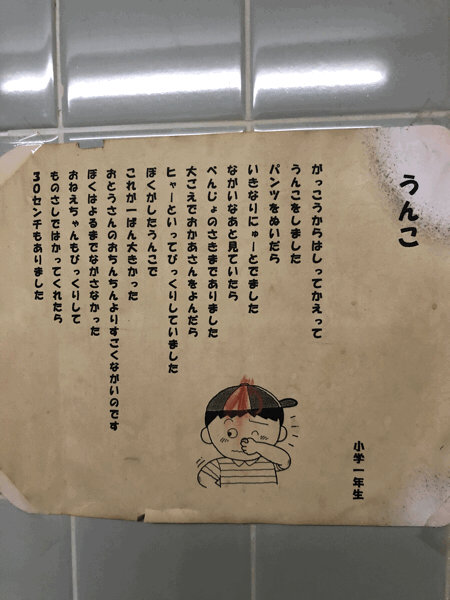 うんこ
小学一年生
がっこうからはしってかえって
うんこをしました
パンツをぬいだら
いきなりにゅーとでました
ながいなあと見ていたら
べんじょのさきまでありました
大ごえでおかあさんをよんだら
ヒャーといってびっくりしていました
ぼくがしたうんこで
これが一ばん大きかった
おとうさんのおちんちんよりすごくながいのです
ぼくはよるまでながさなかった
おねえちゃんもびっくりして
ものさしではかってくれたら
30センチもありました